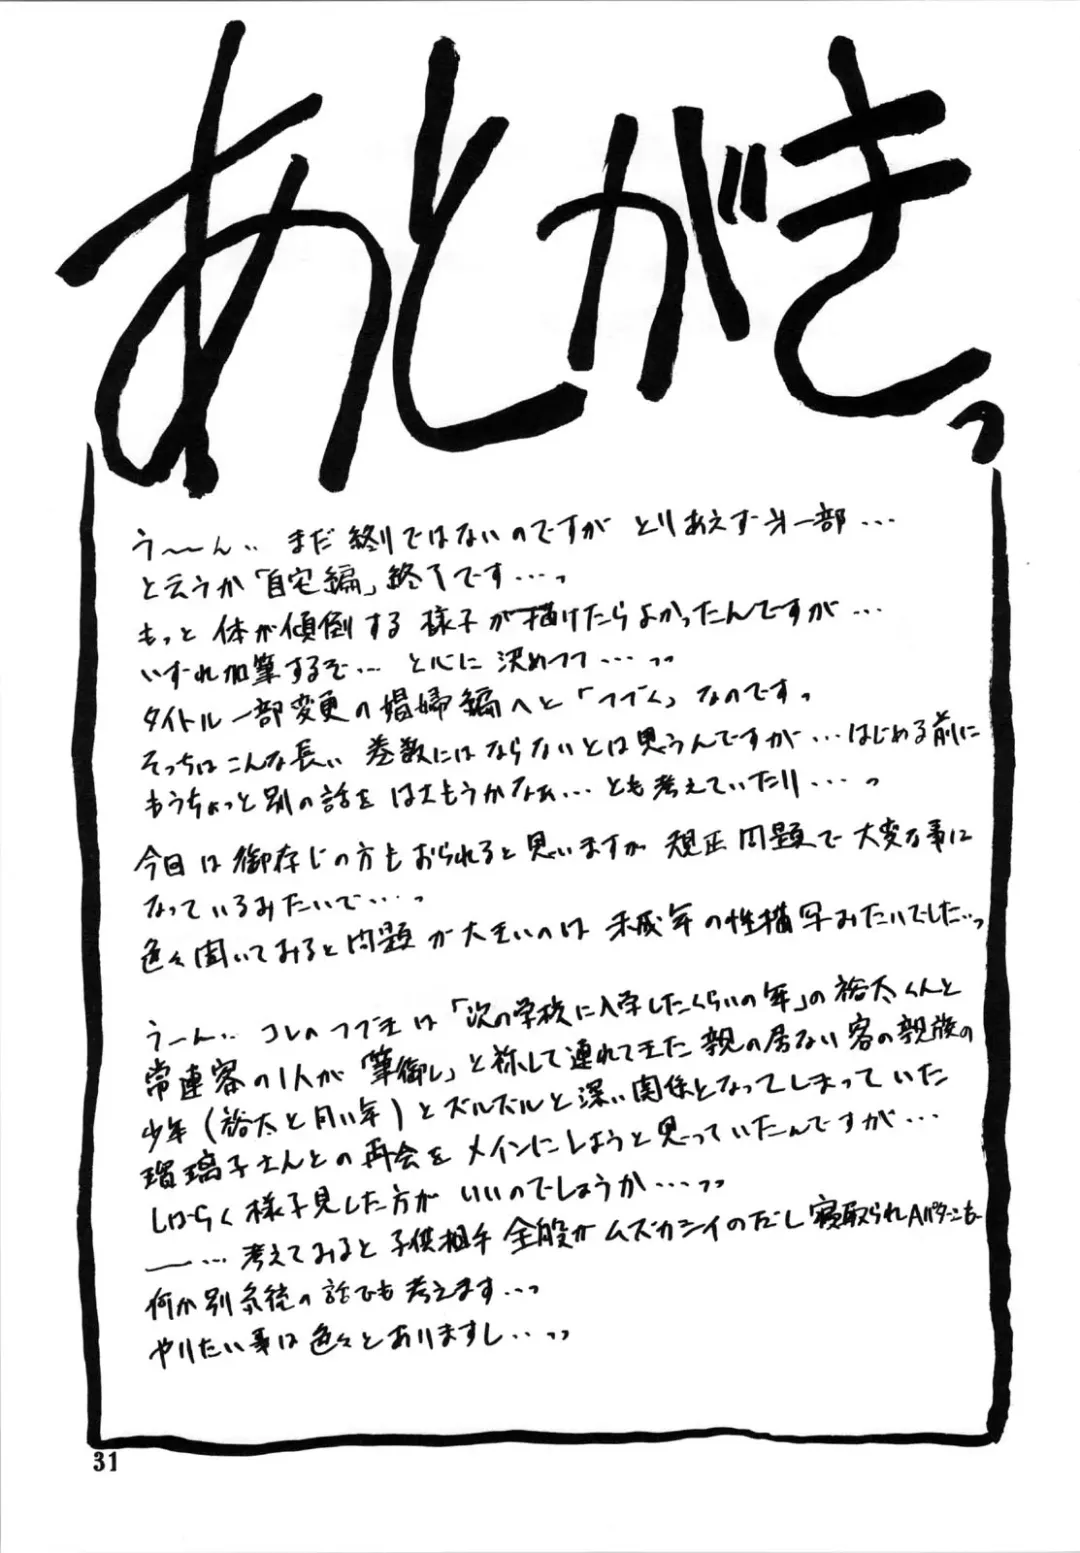 あとがきっ
うーーん・・まだ終りではないのですが とりあえず第一部・・・
と云うか「自宅編」終了です・・・っ
もっと体が傾倒する様子が描けたらよかったんですが・・・
いずれ加筆するぞ・・・と心に決めつつ・・・っっ
タイトル一部変更の娼婦編へと「つづく」なのですっ
そっちはこんな長い巻数にはならないとは思うんですが・・・はじめる前に
もうちょっと別の話をはさもうかなぁ・・・とも考えていたり・・・っ
今回は御存じの方もおられると思いますが規正問題で大変な事に
なっているみたいで・・・・っ
色々聞いてみると問題が大きいのは未成年の性描写みたいでした・・っ
うーん・・コレのつづきは「次の学校に入学したくらいの年」の裕太くんと
常連客の1人が「筆御し」と称して連れてきた親の居ない客の親族の
少年（裕太と同い年）とズルズルと深い関係となってしまっていた
瑠璃子さんとの再会をメインにしようと思っていたんですが・・・
しばらく様子見した方がいいのでしょうか・・・っっ
ー・・・考えてみると子供相手全般がムズカシイのだし寝取られAパターンも
何か別系統の話でも考えます・・・っ
やりたい事は色々とありますし・・っっ
31